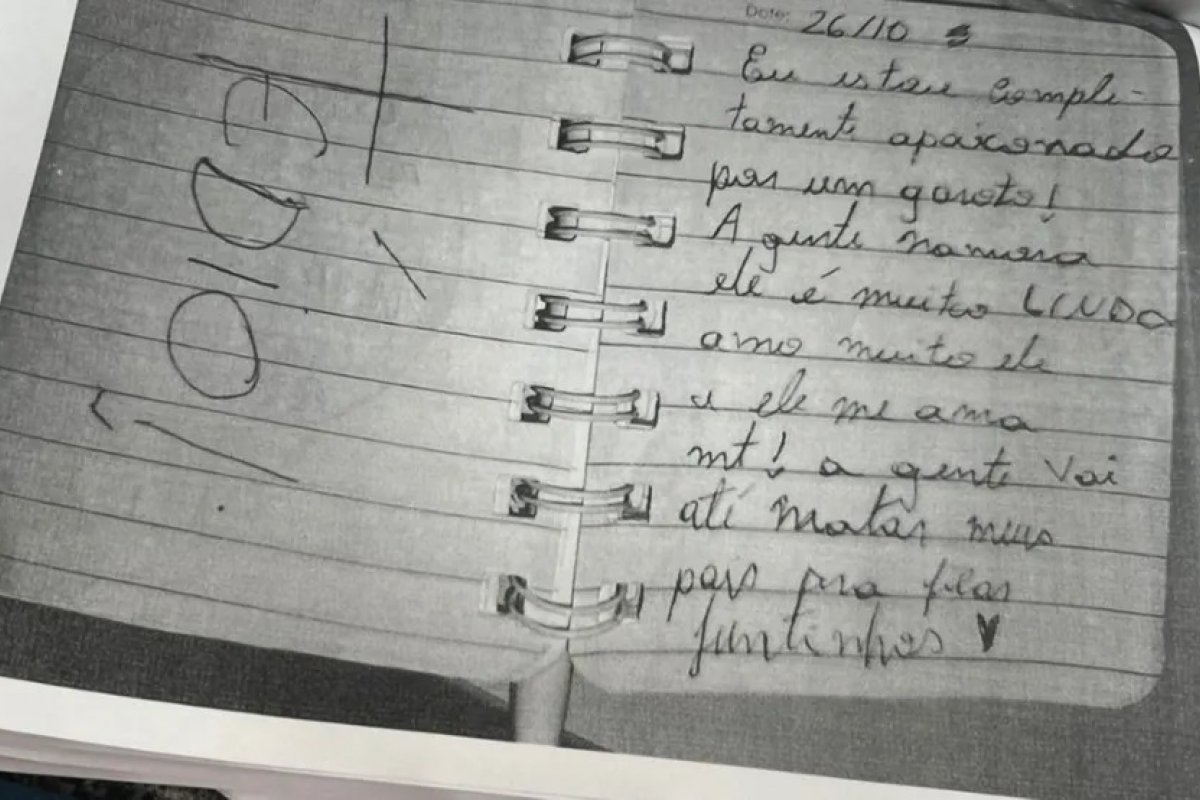 Date: 26/10
Eu estou comple-
tamente apaixonado
por um garoto!
A gente namora
ele é muito LINDO
amo muito ele
e ele me ama
mt! a gente vai
até matar meus
pais pra ficar
juntinhos ♥